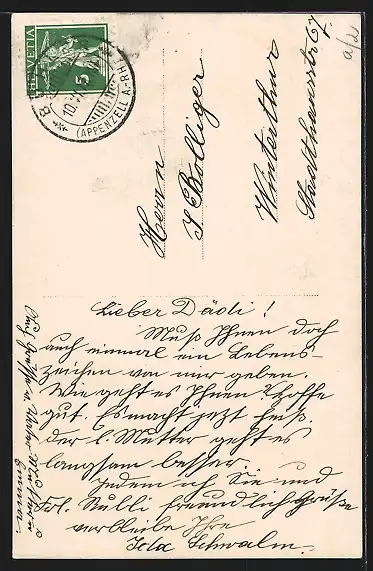 HELVETIA
5
10.
(APPENZELL A.-RH.)
a/2
Herrn
J. Bolliger
Winterthur
Stadthausstr. 67.
Lieber Dädi!
Muß Ihnen doch
auch einmal ein Lebens-
zeichen von mir geben.
Wie geht es Ihnen? Hoffe
gut. Es macht jetzt heiß.
Der l. Mutter geht es
langsam besser.
Indem ich Sie und
Frl. Nulli freundlich Grüße
verbleibe Ihre
Ida Schwalm.